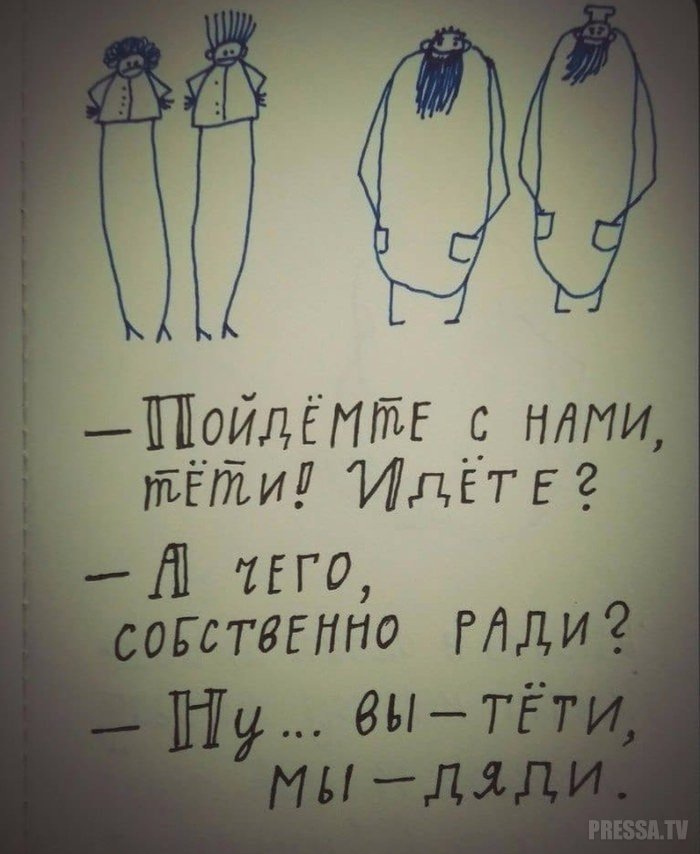 — Пойдёмте с нами,
тёти! Идёте?
— А чего,
собственно ради?
— Ну... вы — тёти,
мы — дяди.
PRESSA.TV